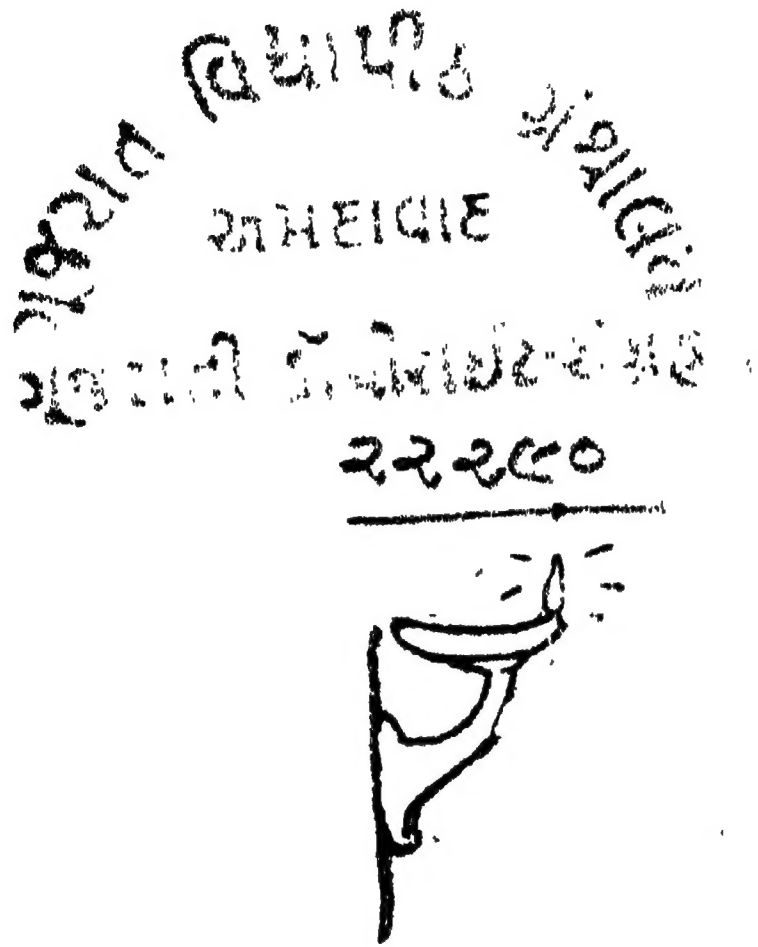 ગુજરાત વિદ્યાપીઠ ગ્રંથાલય
અમદાવાદ
ગુજરાતી કૉપીરાઈટ-સંગ્રહ
૨૨૨૯૦